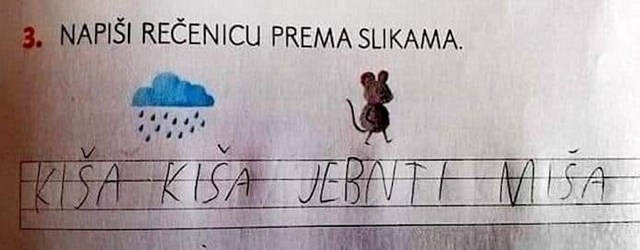 3. NAPIŠI REČENICU PREMA SLIKAMA.
KIŠA KIŠA JEBNTI MIŠA